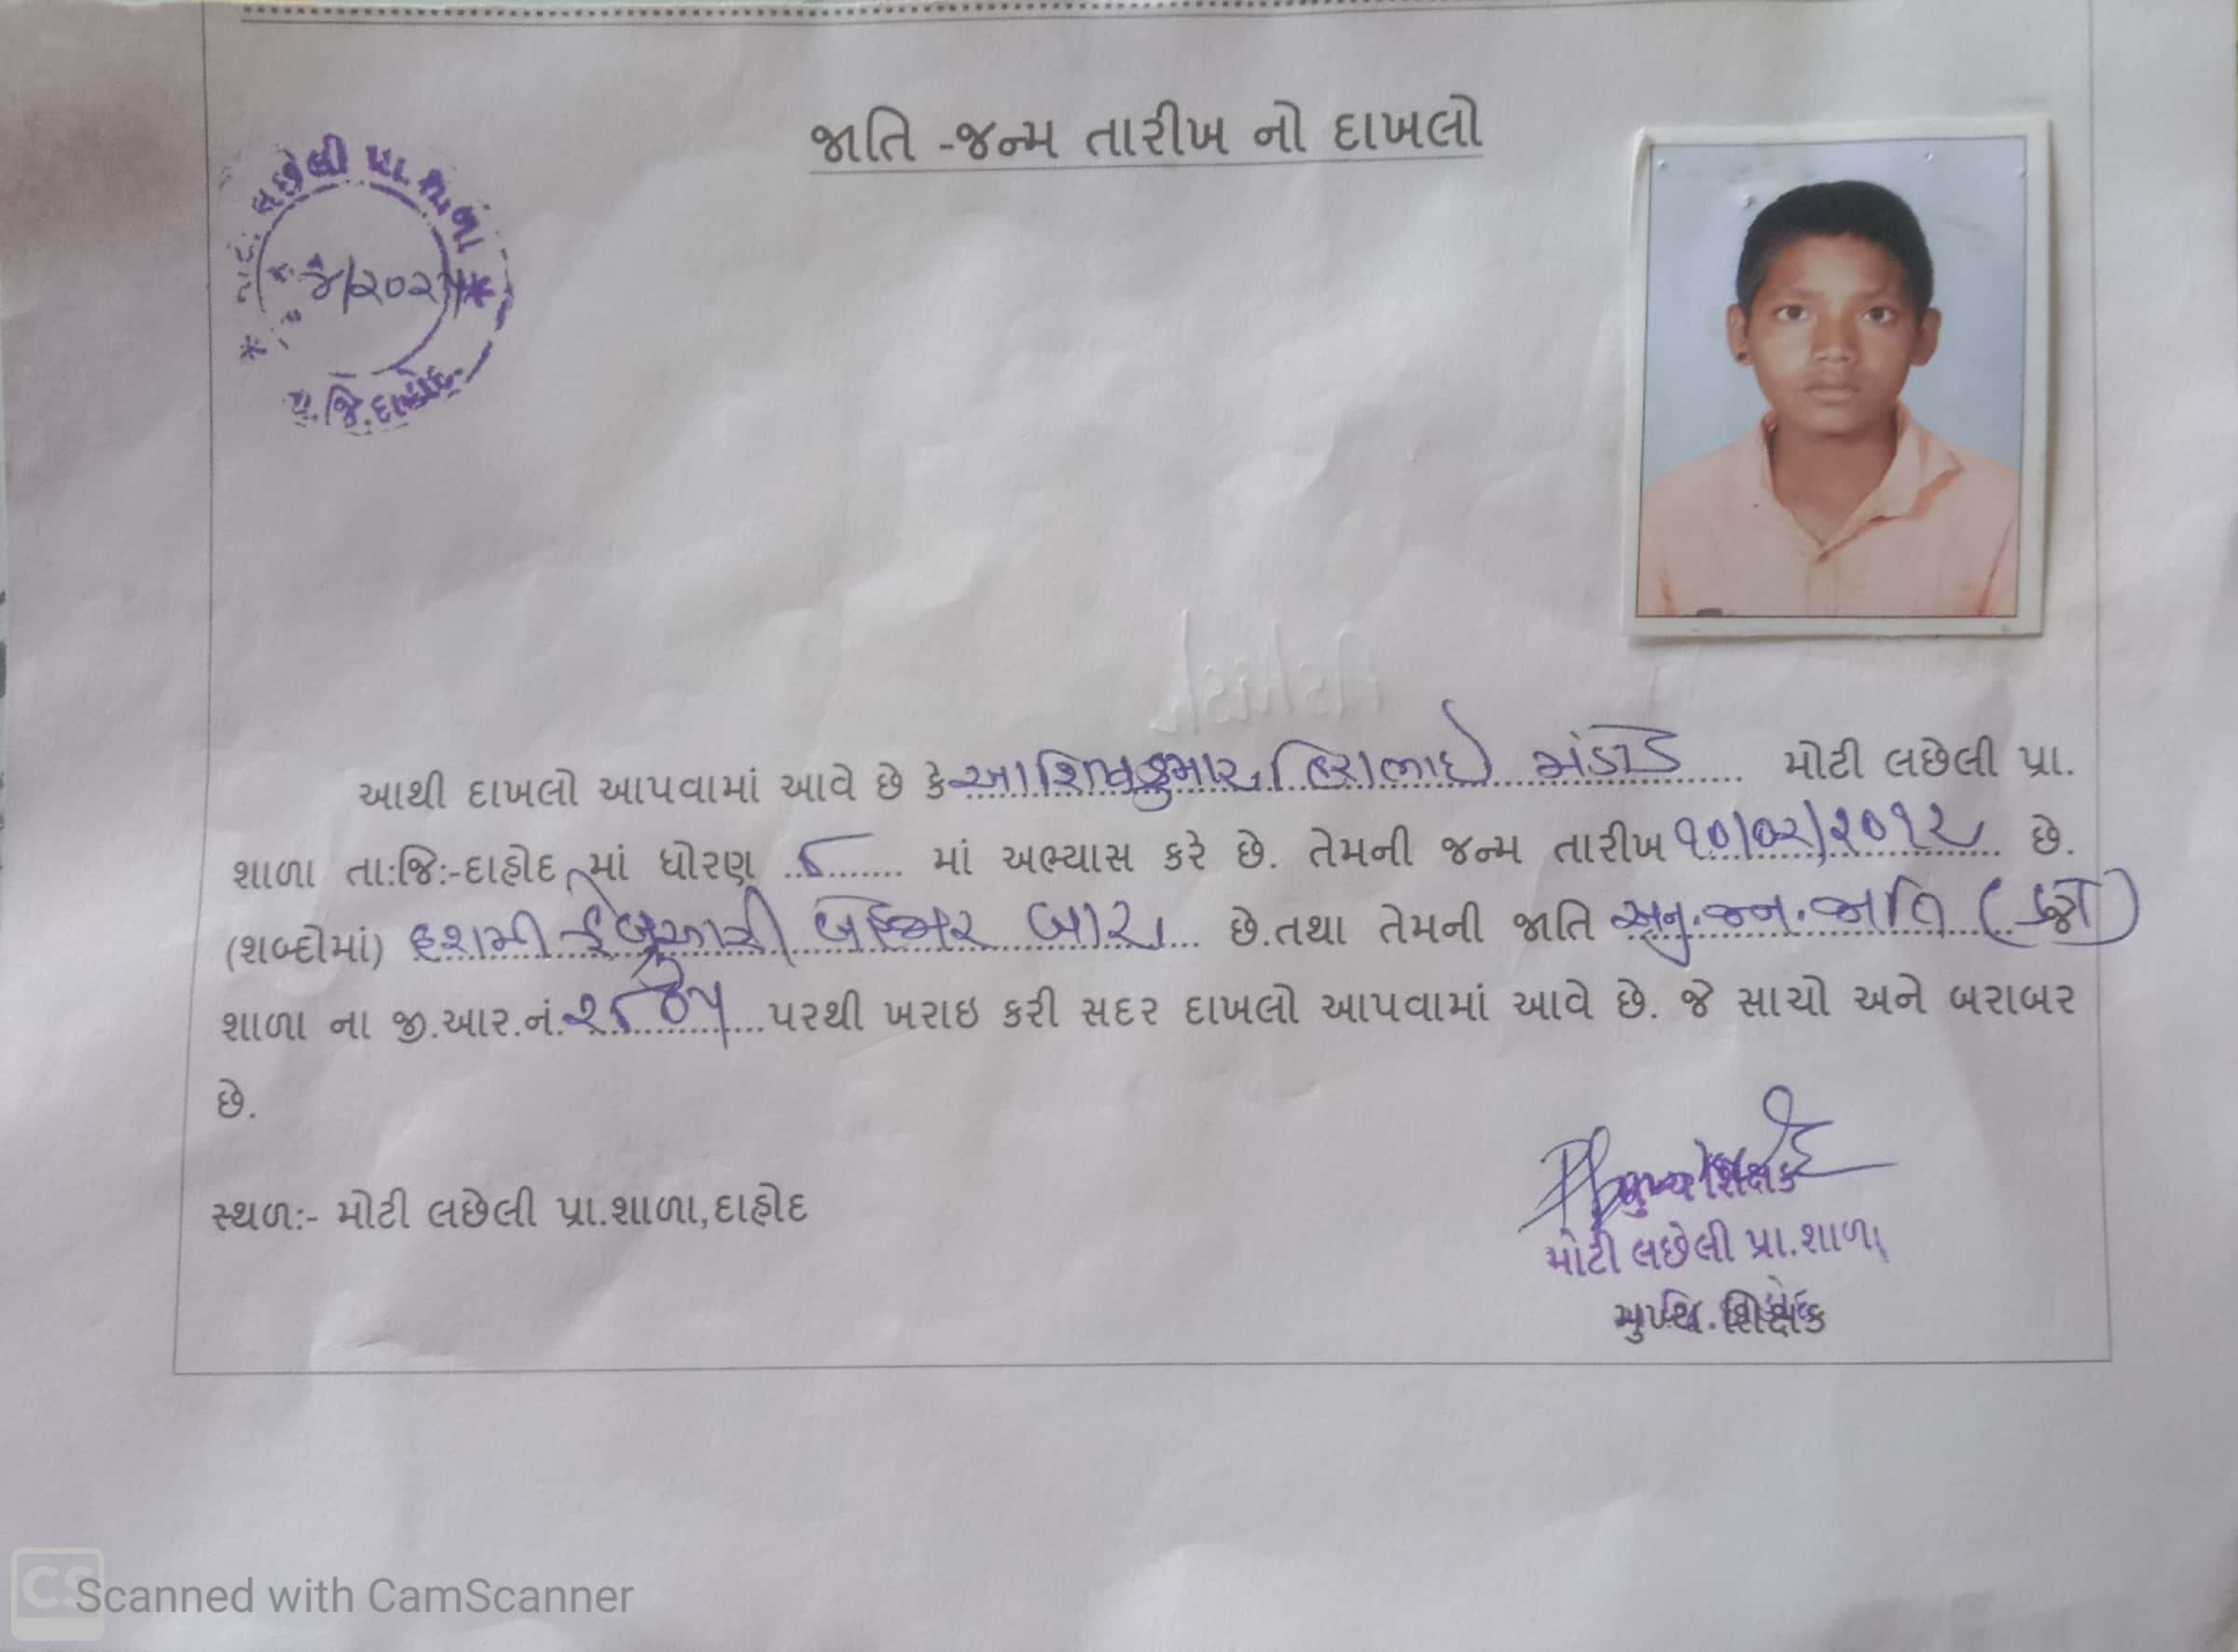 જાતિ -જન્મ તારીખ નો દાખલો
લછેલી
/૨૦૨
જિ.દાહોદ.
Ashish
આથી દાખલો આપવામાં આવે છે કે આશિષકુમાર હિરાભાઇ મંડોડ મોટી લછેલી પ્રા.
શાળા તા:જિ:-દાહોદ માં ધોરણ ૮ માં અભ્યાસ કરે છે. તેમની જન્મ તારીખ ૧૦/૦૨/૨૦૧૨ છે.
(શબ્દોમાં) દશમી ફેબ્રુઆરી બેહજાર બાર છે.તથા તેમની જાતિ અનુ.જન.જાતિ
શાળા ના જી.આર.નં. પરથી ખરાઇ કરી સદર દાખલો આપવામાં આવે છે. જે સાચો અને બરાબર
છે.
મુખ્ય શિક્ષક
સ્થળ:- મોટી લછેલી પ્રા.શાળા,દાહોદ
મોટી લછેલી પ્રા.શાળા
મુખ્ય શિક્ષક
CS Scanned with CamScanner